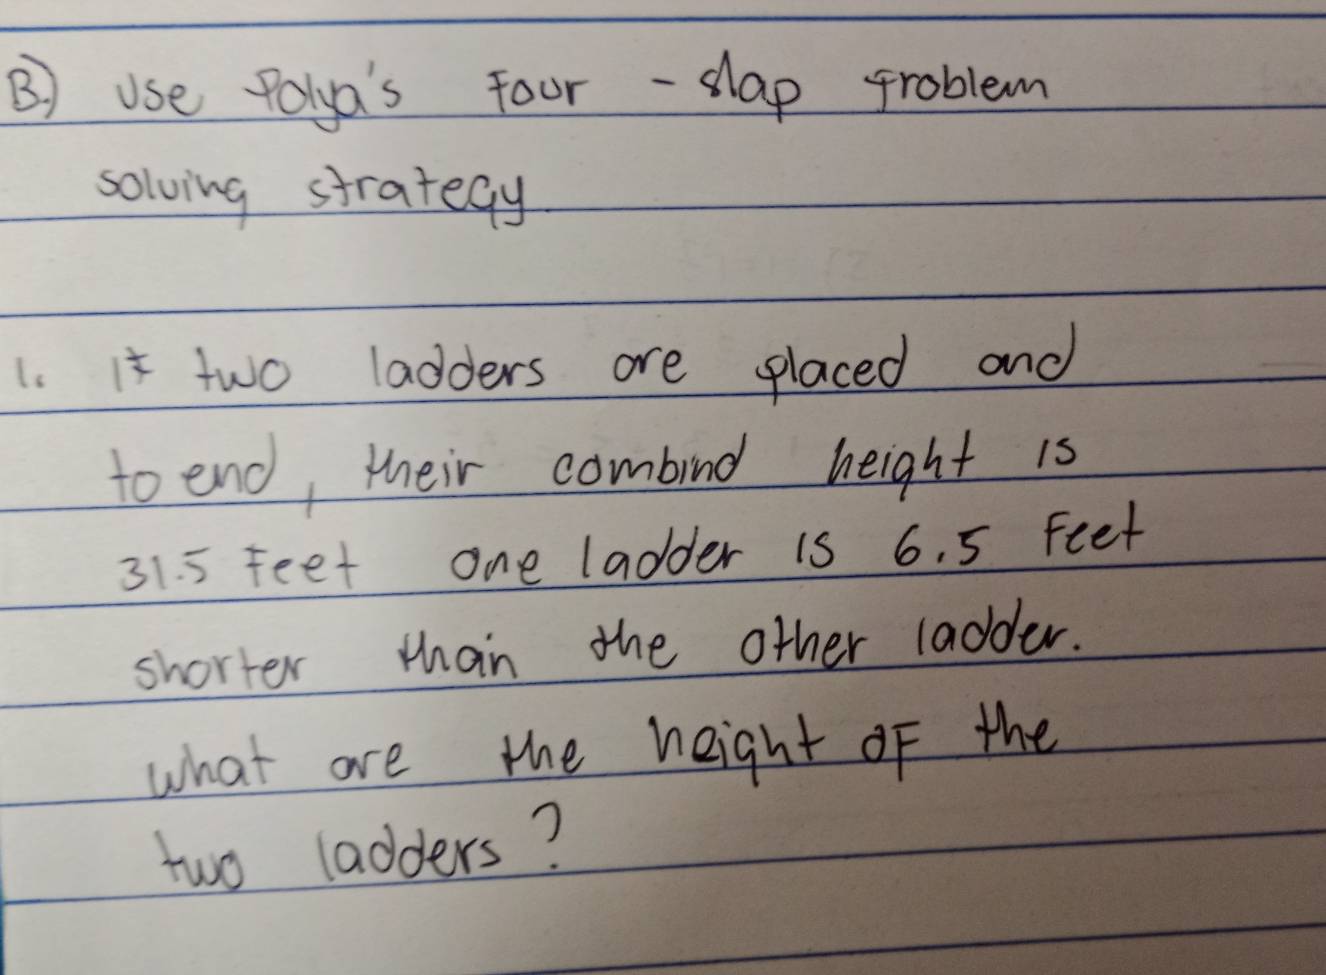 B.) Use Polya's Four - slap problem
solving strategy.
1. If two ladders are placed and
to end, their combind height is
31.5 feet one ladder is 6.5 Feet
shorter than the other ladder.
what are the height of the
two ladders?